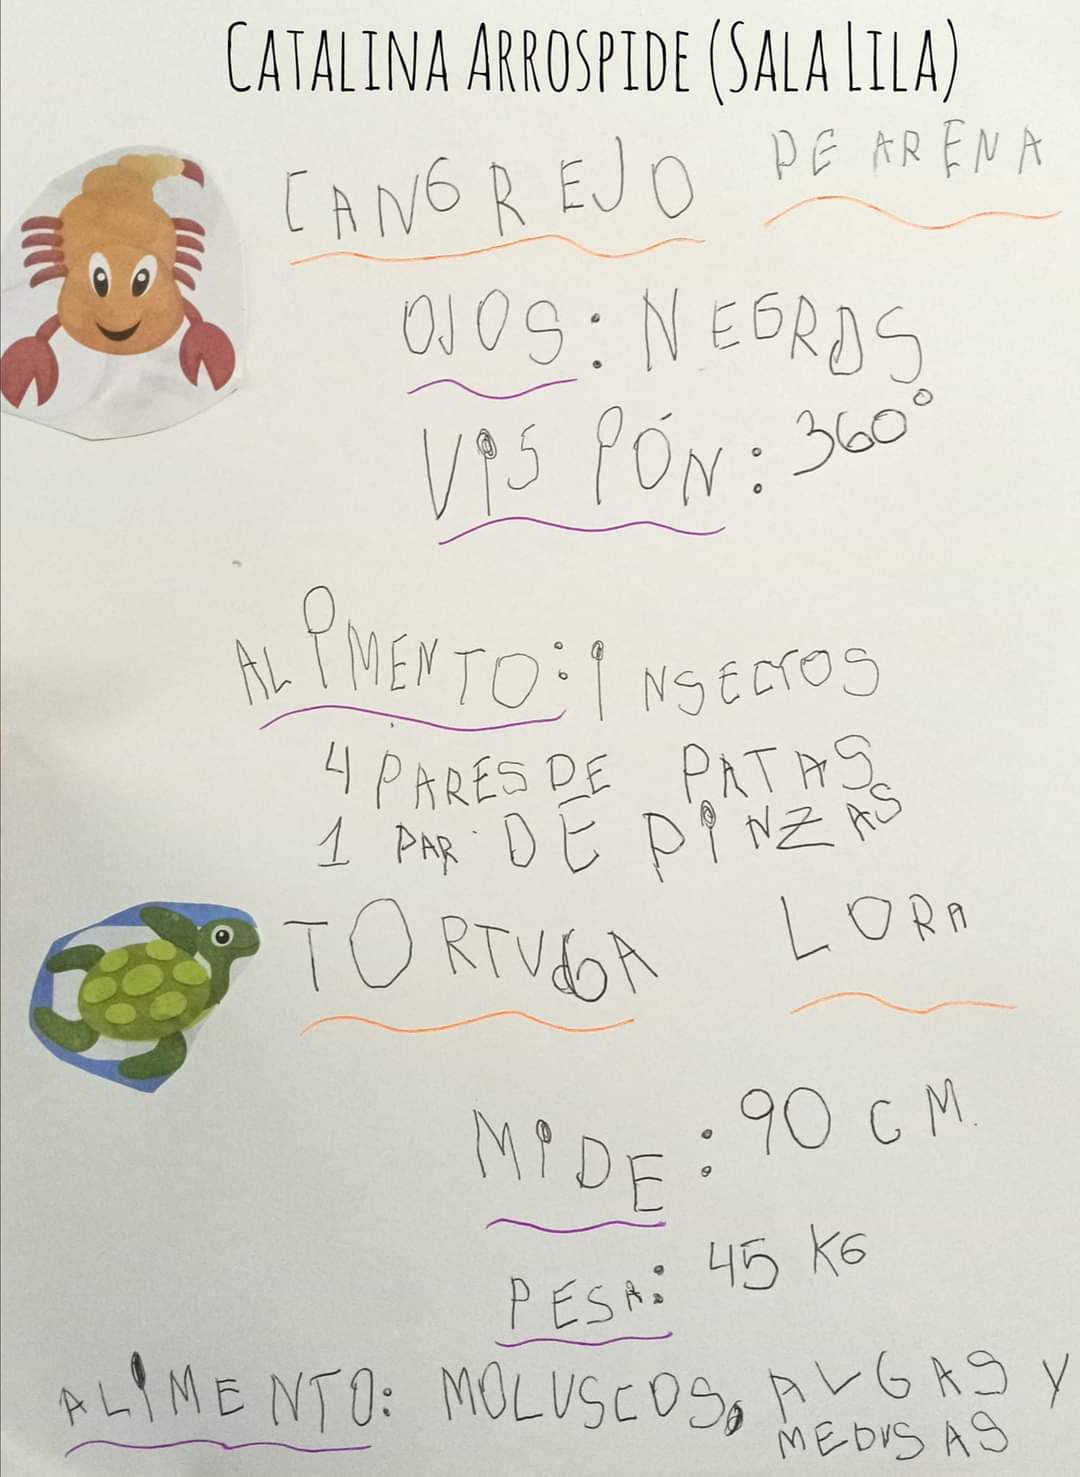 CATALINA ARROSPIDE (SALA LILA)
CANGREJO DE ARENA
OJOS: NEGROS
VISIÓN: 360°
ALIMENTO: INSECTOS
4 PARES DE PATAS
1 PAR DE PINZAS
TORTUGA LORA
MIDE: 90 CM.
PESA: 45 KG
ALIMENTO: MOLUSCOS, ALGAS Y
MEDUSAS